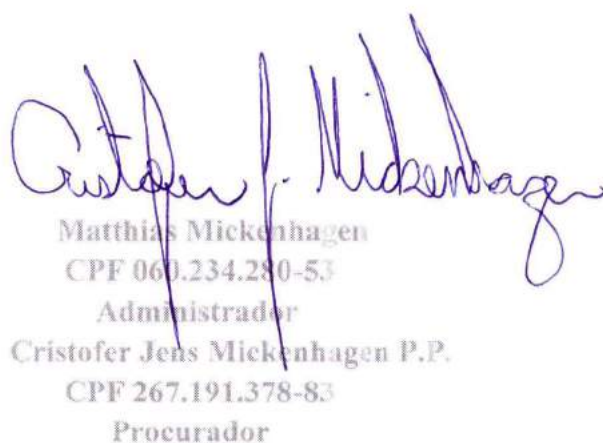 Cristofer J. Mickenhagen
Matthias Mickenhagen
CPF 060.234.280-53
Administrador
Cristofer Jens Mickenhagen P.P.
CPF 267.191.378-83
Procurador